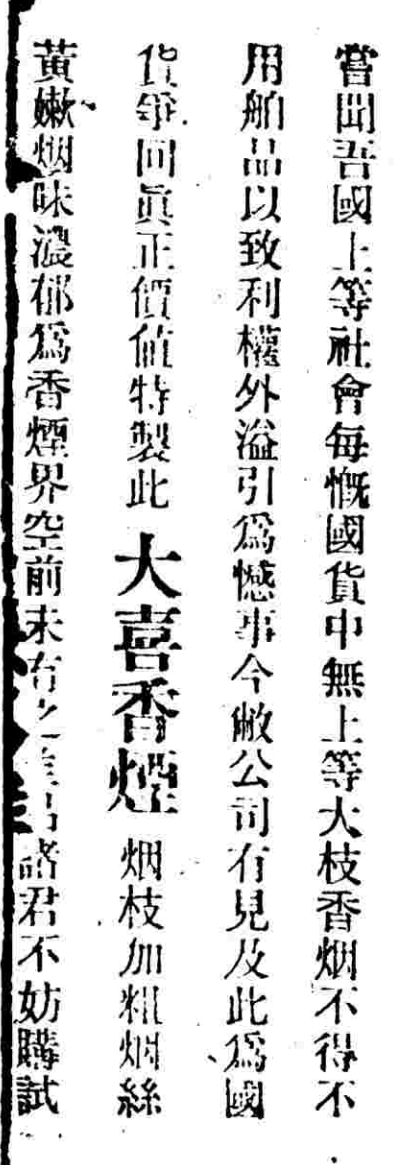 嘗聞吾國上等社會每慨國貨中無上等大枝香烟不得不
用舶品以致利權外溢引爲憾事今敝公司有見及此爲國
貨爭回眞正價値特製此大喜香煙烟枝加粗烟絲
黃嫩烟味濃郁爲香煙界空前未有之諸君不妨購試